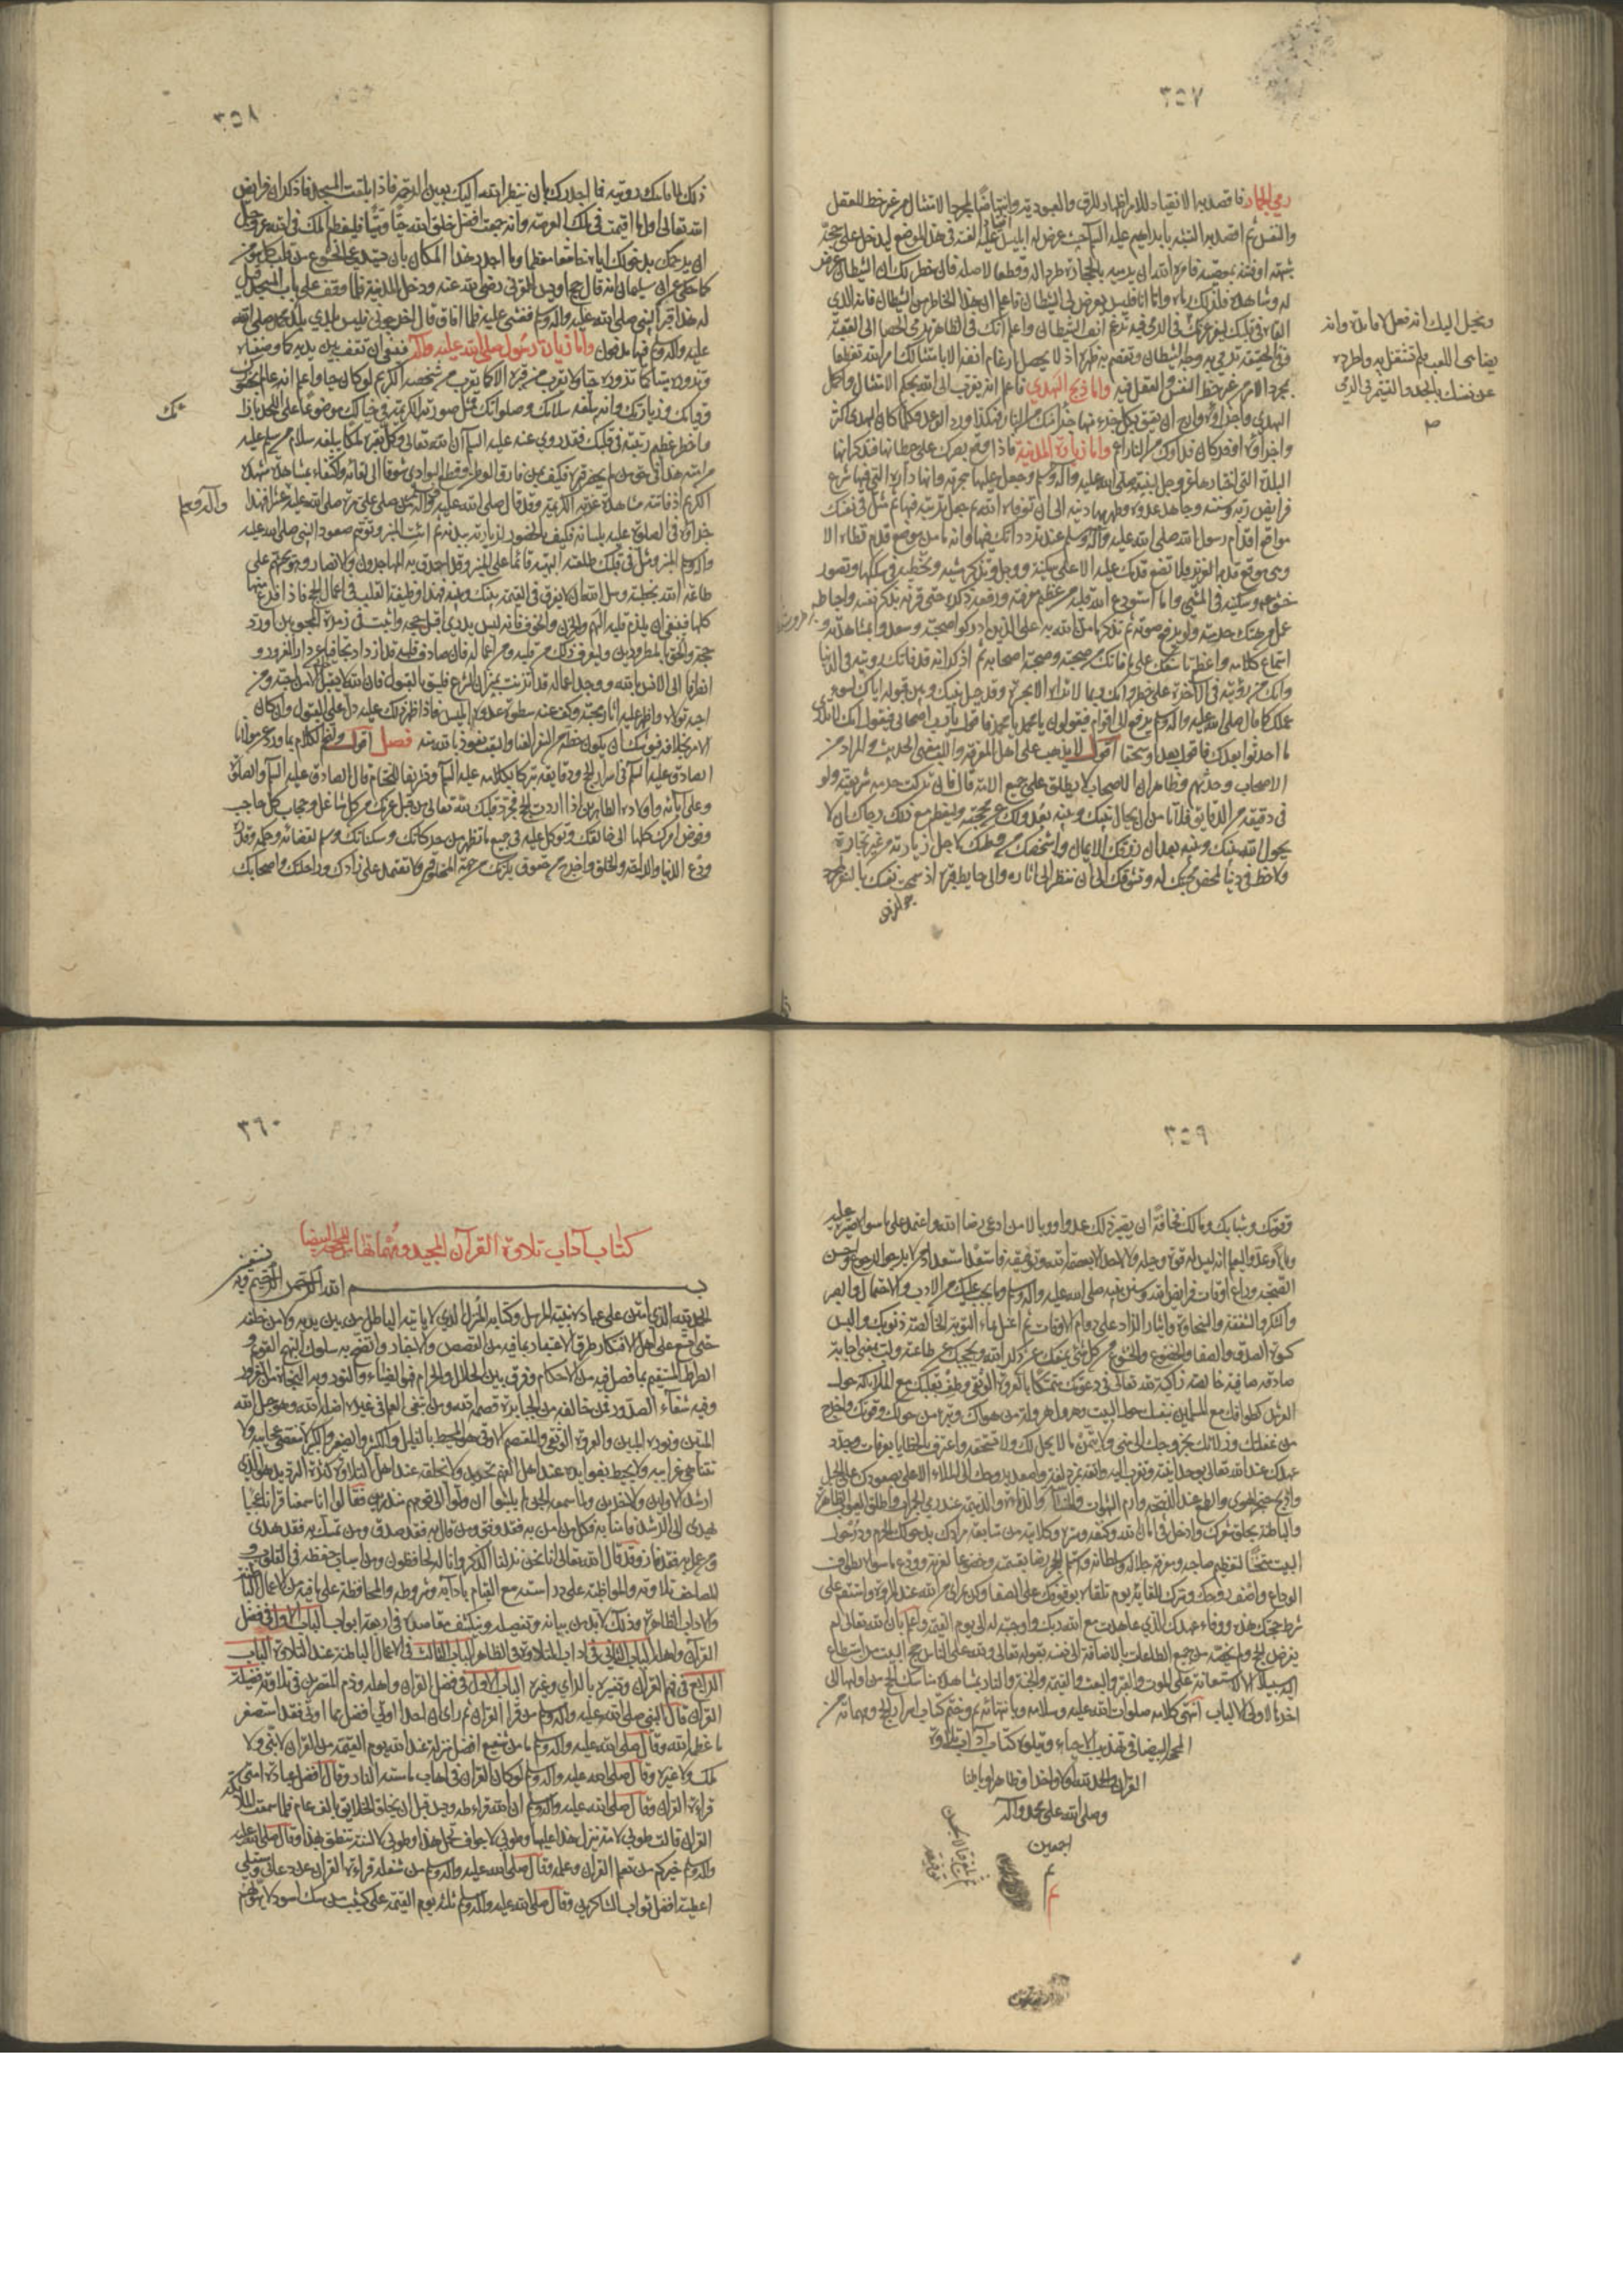 ٣٥٧
رمي الجمار فاقصد به الانقياد للامر اظهارا للرق والعبودية وانتهاضا لمجرد الامتثال من غير حظ للعقل
والنفس ثم اقصد به التشبه بابراهيم عليه السلم حيث عرض له ابليس عليه اللعنة في هذا الموضع ليدخل على حجه
شبهة او يفتنه بمعصية فامره الله ان يرميه بالحجارة طردا له وقطعا لامله فان خطر لك ان الشيطان عرض
له وشاهده فلذلك رماه واما انا فليس يعرض لي الشيطان فاعلم ان هذا الخاطر من الشيطان فانه الذي
القاه في قلبك ليفتر عزمك في الرمي فيه ترغم انف الشيطان واعلم انك في الظاهر ترمي الحصا الى العقبة
وفي الحقيقة ترمي به وجه الشيطان وتقصم به ظهره اذ لا يحصل ارغام انفه الا بامتثالك امر الله تعظيما
بمجرد الامر من غير حظ النفس والعقل فيه واما ذبح الهدي فاعلم انه تقرب الى الله بحكم الامتثال واكمل
الهدي واجزاؤه وارج ان يعتق بكل جزء منها جزء منك من النار فهكذا ورد الوعد وكلما كان الهدي اكبر
واجزاؤه اوفر كان فداؤك من النار اعم واما زيارة المدينة فاذا وقع بصرك على حيطانها فتذكر انها
البلدة التي اختارها عز وجل لنبيه صلى الله عليه وآله وسلم وجعل اليها هجرته وانها داره التي فيها شرع
فرايض ربه وسننه وجاهد عدوه وظهر بها دينه الى ان توفاه الله ثم جعل تربته فيها ثم مثل في نفسك
مواقع اقدام رسول الله صلى الله عليه وآله وسلم عند تردداتك فيها وانه ما من موضع قدم تطاه الا
وهي موقع قدمه العزيز فلا تضع قدمك عليه الا على سكينة ووجل وتذكر مشيه وتخطيه في سككها وتصور
خشوعه وسكينته في المشي وما استودع الله قلبه من عظيم معرفته ورفعة ذكره حتى قرنه بذكر نفسه واحباطه
عمل من هتك حرمته ولو برفع صوته ثم تذكر ما من الله به على الذين ادركوا صحبته وسعدوا بمشاهدته و
استماع كلامه واعظم تاسفك على ما فاتك من صحبته وصحبة اصحابه ثم اذكر انه قد فاتك رويته في الدنيا
وانك من رؤيته في الآخرة على خطر وانك ربما لا تراه الا بحسرة وقد حيل بينك وبين قبوله اياك لسوء
عملك كما قال صلى الله عليه وآله وسلم يرفع الي اقوام فيقولون يا محمد يا محمد فاقول يا رب اصحابي فيقول انك لا تدري
ما احدثوا بعدك فاقول بعدا وسحقا اقول لا يذهب على اهل المعرفة والتيقظ الحديث والمراد من
الاصحاب وظاهر ان الاصحاب لا يطلق على جميع الامة قال فان تركت حرمة شريعته ولو
في دقيقة من الدقايق فلا تامن ان يحال بينك وبينه بعدولك عن محجته وليعظم مع ذلك رجاؤك ان لا
يحول الله بينك وبينه بعد ان رزقك الايمان واشخصك من وطنك لاجل زيارته من غير تجارة
ولا حظ في دنيا لمحض حبك له وتشوقك الى ان تنظر الى آثاره والى حايط قبره اذ سمحت نفسك بالسفر بمجرد
ويخيل اليك انه فعل لا فايدة وانه
يضاهي اللعب فلم تشتغل به واطرده
عن نفسك بالجد والتشمر في الرمي
٣٥٨
ذلك لما فاتتك رؤيته فما اجدرك بان ينظر الله اليك بعين الرحمة فاذا بلغت المسجد فاذكر ان فرايض
الله تعالى اول ما اقيمت في تلك العرصة وانه جمعت افضل خلق الله حيا وميتا فليعظم املك في الله عز وجل
ان يرحمك بدخولك اياه خاشعا معظما وما اجدر هذا المكان بان يستدعي الخشوع من قلب كل مؤمن
كما حكى عن ابي سليمان انه قال حج اويس القرني رضي الله عنه ودخل المدينة فلما وقف على باب المسجد قيل
له هذا قبر النبي صلى الله عليه وآله وسلم فغشي عليه فلما افاق قال اخرجوني فليس بلذ لي بلد محمد صلى الله
عليه وآله وسلم فيها مدفون واما زيارة رسول الله صلى الله عليه وآله فينبغي ان تقف بين يديه كما وصفناه
وتزوره ميتا كما تزوره حيا ولا تقرب من قبره الا كما تقرب من شخصه الكريم لو كان حيا واعلم انه عالم بحضورك
وقيامك وزيارتك وانه يبلغه سلامك وصلواتك فمثل صورته الكريمة في خيالك موضوعا على اللحد بازائك
واخطر عظيم رتبته في قلبك فقد روي عنه عليه السلم ان الله تعالى وكل بقبره ملكا يبلغه سلام من سلم عليه
من امته هذا في حق من لم يحضر قبره فكيف بمن فارق الوطن وقطع البوادي شوقا الى لقائه واكتفاء بمشاهدة مشهده
الكريم اذ فاتته مشاهدة غرته الكريمة وقد قال صلى الله عليه وآله من صلى علي مرة صلى الله عليه عشرا فهذا
جزاؤه في الصلوة عليه بلسانه فكيف بالحضور لزيارته ببدنه ثم ائت المنبر وتوهم صعود النبي صلى الله عليه
وآله وسلم المنبر ومثل في قلبك طلعته البهية قائما على المنبر وقد احدق به المهاجرون والانصار وهو يحثهم على
طاعة الله بخطبته وسل الله تعالى ان لا يفرق في القيمة بينك وبينه فهذا وظيفة القلب في اعمال الحج فاذا فرغ منها
كلها فينبغي ان يلزم قلبه الهم والحزن والخوف فانه ليس يدري اقبل حجه واثبت في زمرة المحبوبين ام رد
حجه والحق بالمطرودين وليعرف ذلك من قلبه ومن اعماله فان صادف قلبه قد ازداد تجافيا عن دار الغرور و
انصرافا الى الانس بالله ووجد اعماله قد اتزنت بميزان الشرع فليثق بالقبول فان الله لا يقبل الا من احبه ومن
احبه تولاه واظهر عليه آثار محبته وكف عنه سطوة عدوه ابليس فاذا ظهر ذلك عليه دل على القبول وان كان
الامر بخلافه فيوشك ان يكون حظه من السفر العنا والتعب نعوذ بالله منه فصل اقول ولنختم الكلام بما ورد عن مولانا
الصادق عليه السلم في اسرار الحج ودقايقه تبركا بكلامه عليه السلم وتشريفا للختام قال الصادق عليه السلم والصلوة
وعلى آبائه واولاده الطاهرين اذا اردت الحج فجرد قلبك لله تعالى من قبل عزمك من كل شاغل وحجاب كل حاجب
وفوض امورك كلها الى خالقك وتوكل عليه في جميع ما تظهر من حركاتك وسكناتك وسلم لقضائه وحكمه وقدره
ودع الدنيا والراحة والخلق واخرج من حقوق يلزمك من جهة المخلوقين ولا تعتمد على زادك وراحلتك واصحابك
وآله وسلم
٣٥٩
وقوتك وشبابك ومالك مخافة ان يصير ذلك عدوا ووبالا من ادعى رضا الله واعتمد على ما سواه صيره عليه
وبالا وعدوا ليعلم انه ليس له قوة وحيلة ولا لاحد الا بعصمة الله وتوفيقه فاستعد استعداد من لا يرجو الرجوع واحسن
الصحبة وراع اوقات فرايض الله وسنن نبيه صلى الله عليه وآله وسلم وما يجب عليك من الادب والاحتمال والصبر
والشكر والشفقة والسخاوة وايثار الزاد على دوام الاوقات ثم اغسل بماء التوبة الخالصة ذنوبك والبس
كسوة الصدق والصفا والخضوع والخشوع واحرم من كل شي يمنعك عن ذكر الله ويحجبك عن طاعته ولب بمعنى اجابة
صادقة صافية خالصة زاكية لله تعالى في دعوتك متمسكا بالعروة الوثقى وطف بقلبك مع الملائكة حول
العرش كطوافك مع المسلمين بنفسك حول البيت وهرول هرولة من هواك وتبرء من حولك وقوتك واخرج
من غفلتك وزلاتك بخروجك الى منى ولا تتمن ما لا يحل لك ولا تستحقه واعترف بالخطايا بعرفات وجدد
عهدك عند الله تعالى بوحدانيته وتقرب اليه واتقه بمزدلفة واصعد بروحك الى الملاء الاعلى بصعودك على الجبل
واذبح حنجر الهوى والطمع عند الذبيحة وارم الشهوات والخساسة والدناءة والذميمة عند رمي الجمرات واحلق العيوب الظاهرة
والباطنة بحلق شعرك وادخل في امان الله وكنفه وستره وكلاءته من متابعة مرادك بدخولك الحرم ودر حول
البيت متحققا لتعظيم صاحبه ومعرفة جلاله وسلطانه واستلم الحجر رضا بقسمته وخضوعا لعزته وودع ما سواه بطواف
الوداع واصف روحك وسرك للقائه يوم تلقاه بوقوفك على الصفا وكن بمرءى من الله عند المروة واستقم على
شرط حجتك هذه ووفاء عهدك الذي عاهدت مع الله ربك واوجبته له الى يوم القيمة واعلم بان الله تعالى لم
يفترض الحج ولم يخصه من جميع الطاعات بالاضافة الى نفسه بقوله تعالى ولله على الناس حج البيت من استطاع
اليه سبيلا الا للاستعانة على الموت والقبر والبعث والقيمة والجنة والنار بمشاهدة مناسك الحج من اولها الى
اخرها لاولي الالباب انتهى كلامه صلوات الله عليه وسلامه وبانتهائه تم وختم كتاب اسرار الحج ومهماته من
المحجة البيضاء في تهذيب الاحياء ويتلوه كتاب آداب تلاوة
القرآن والحمد لله اولا واخرا وظاهرا وباطنا
وصلى الله على محمد وآله
اجمعين
٣٦٠
كتاب آداب تلاوة القرآن المجيد ومهماتها من المحجة البيضا
بسم الله الرحمن الرحيم وبه نستعين
الحمد لله الذي امتن على عباده بنبيه المرسل وكتابه المنزل الذي لا ياتيه الباطل من بين يديه ولا من خلفه
حتى اتسع على اهل الافكار طرق الاعتبار بما فيه من القصص والاخبار واتضح به سلوك المنهج القويم و
الصراط المستقيم بما فصل فيه من الاحكام وفرق بين الحلال والحرام فهو الضياء والنور وبه النجاة من الغرور
وفيه شفاء الصدور من خالفه من الجبابرة قصمه الله ومن ابتغى العلم في غيره اضله الله وهو حبل الله
المتين ونوره المبين والعروة الوثقى والمعتصم الاوقى وهو المحيط بالقليل والكثير والصغير والكبير لا تنقضي عجايبه ولا
تتناهى غرايبه ولا يحيط بفوايده عند اهل الفهم تحديد ولا يخلقه عند اهل التلاوة كثرة الترديد هو الذي
ارشد الاولين والاخرين ولما سمعه الجن لم يلبثوا ان ولوا الى قومهم منذرين فقالوا انا سمعنا قرانا عجبا
يهدي الى الرشد فآمنا به فكل من آمن به فقد وفق ومن قال به فقد صدق ومن تمسك به فقد هدي
ومن عمل به فقد فاز وقد قال الله تعالى انا نحن نزلنا الذكر وانا له لحافظون ومن اسباب حفظه في القلوب و
المصاحف تلاوته والمواظبة على دراسته مع القيام بآدابه وشروطه والمحافظة على ما فيه من الاعمال الباطنة
والاداب الظاهرة وذلك لابد من بيانه وتفصيله وينكشف مقاصده في اربعة ابواب الباب الاول في فضل
القرآن واهله الباب الثاني في اداب التلاوة في الظاهر الباب الثالث في الاعمال الباطنة عند التلاوة الباب
الرابع في فهم القرآن وتفسيره بالراي وغيره الباب الاول في فضل القرآن واهله وذم المقصرين في تلاوته فضيلة
القرآن قال النبي صلى الله عليه وآله وسلم من قرأ القرآن ثم راى ان احدا اوتي افضل مما اوتي فقد استصغر
ما عظمه الله وقال صلى الله عليه وآله وسلم ما من شفيع افضل منزلة عند الله يوم القيمة من القرآن لا نبي ولا
ملك ولا غيره وقال صلى الله عليه وآله وسلم لو كان القرآن في اهاب ما مسته النار وقال افضل عبادة امتي
قراءة القرآن وقال صلى الله عليه وآله وسلم ان الله قرا طه ويس قبل ان يخلق الخلايق بالف عام فلما سمعت الملائكة
القرآن قالت طوبى لامة ينزل هذا عليها وطوبى لاجواف تحمل هذا وطوبى لالسنة تنطق بهذا وقال صلى الله عليه
وآله وسلم خيركم من تعلم القرآن وعلمه وقال صلى الله عليه وآله وسلم من شغله قراءة القرآن عن دعائي ومسئلتي
اعطيته افضل ثواب الشاكرين وقال صلى الله عليه وآله وسلم ثلثة يوم القيمة على كثيب من مسك اسود لا يهولهم